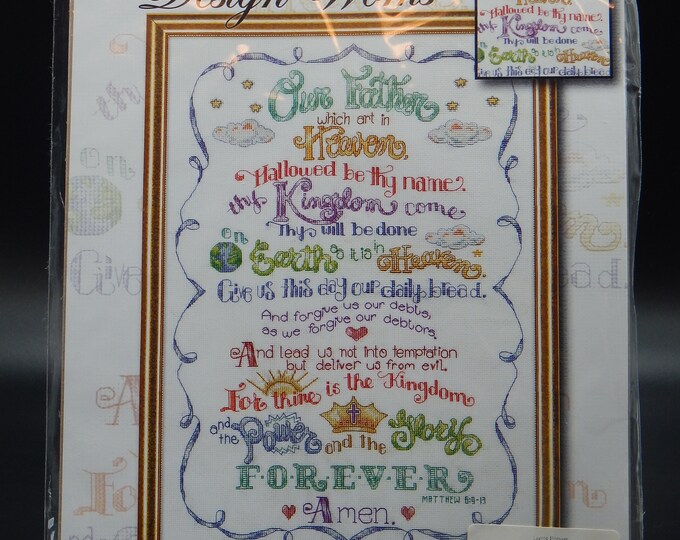 Design Works
Heaven
Hallowed be thy name?
thy Kingdom come
Thy will be done
on Earth as it is in Heaven
Give us this day our daily bread.
Our Father
which art in
Heaven.
Hallowed be thy name?
thy Kingdom come
Thy will be done
on Earth as it is in Heaven.
Give us this day our daily bread.
And forgive us our debts,
as we forgive our debtors.
And lead us not into temptation
but deliver us from evil.
For thine is the Kingdom
and the Power and the Glory
F·O·R·E·V·E·R
MATTHEW 6:9-13
Amen.